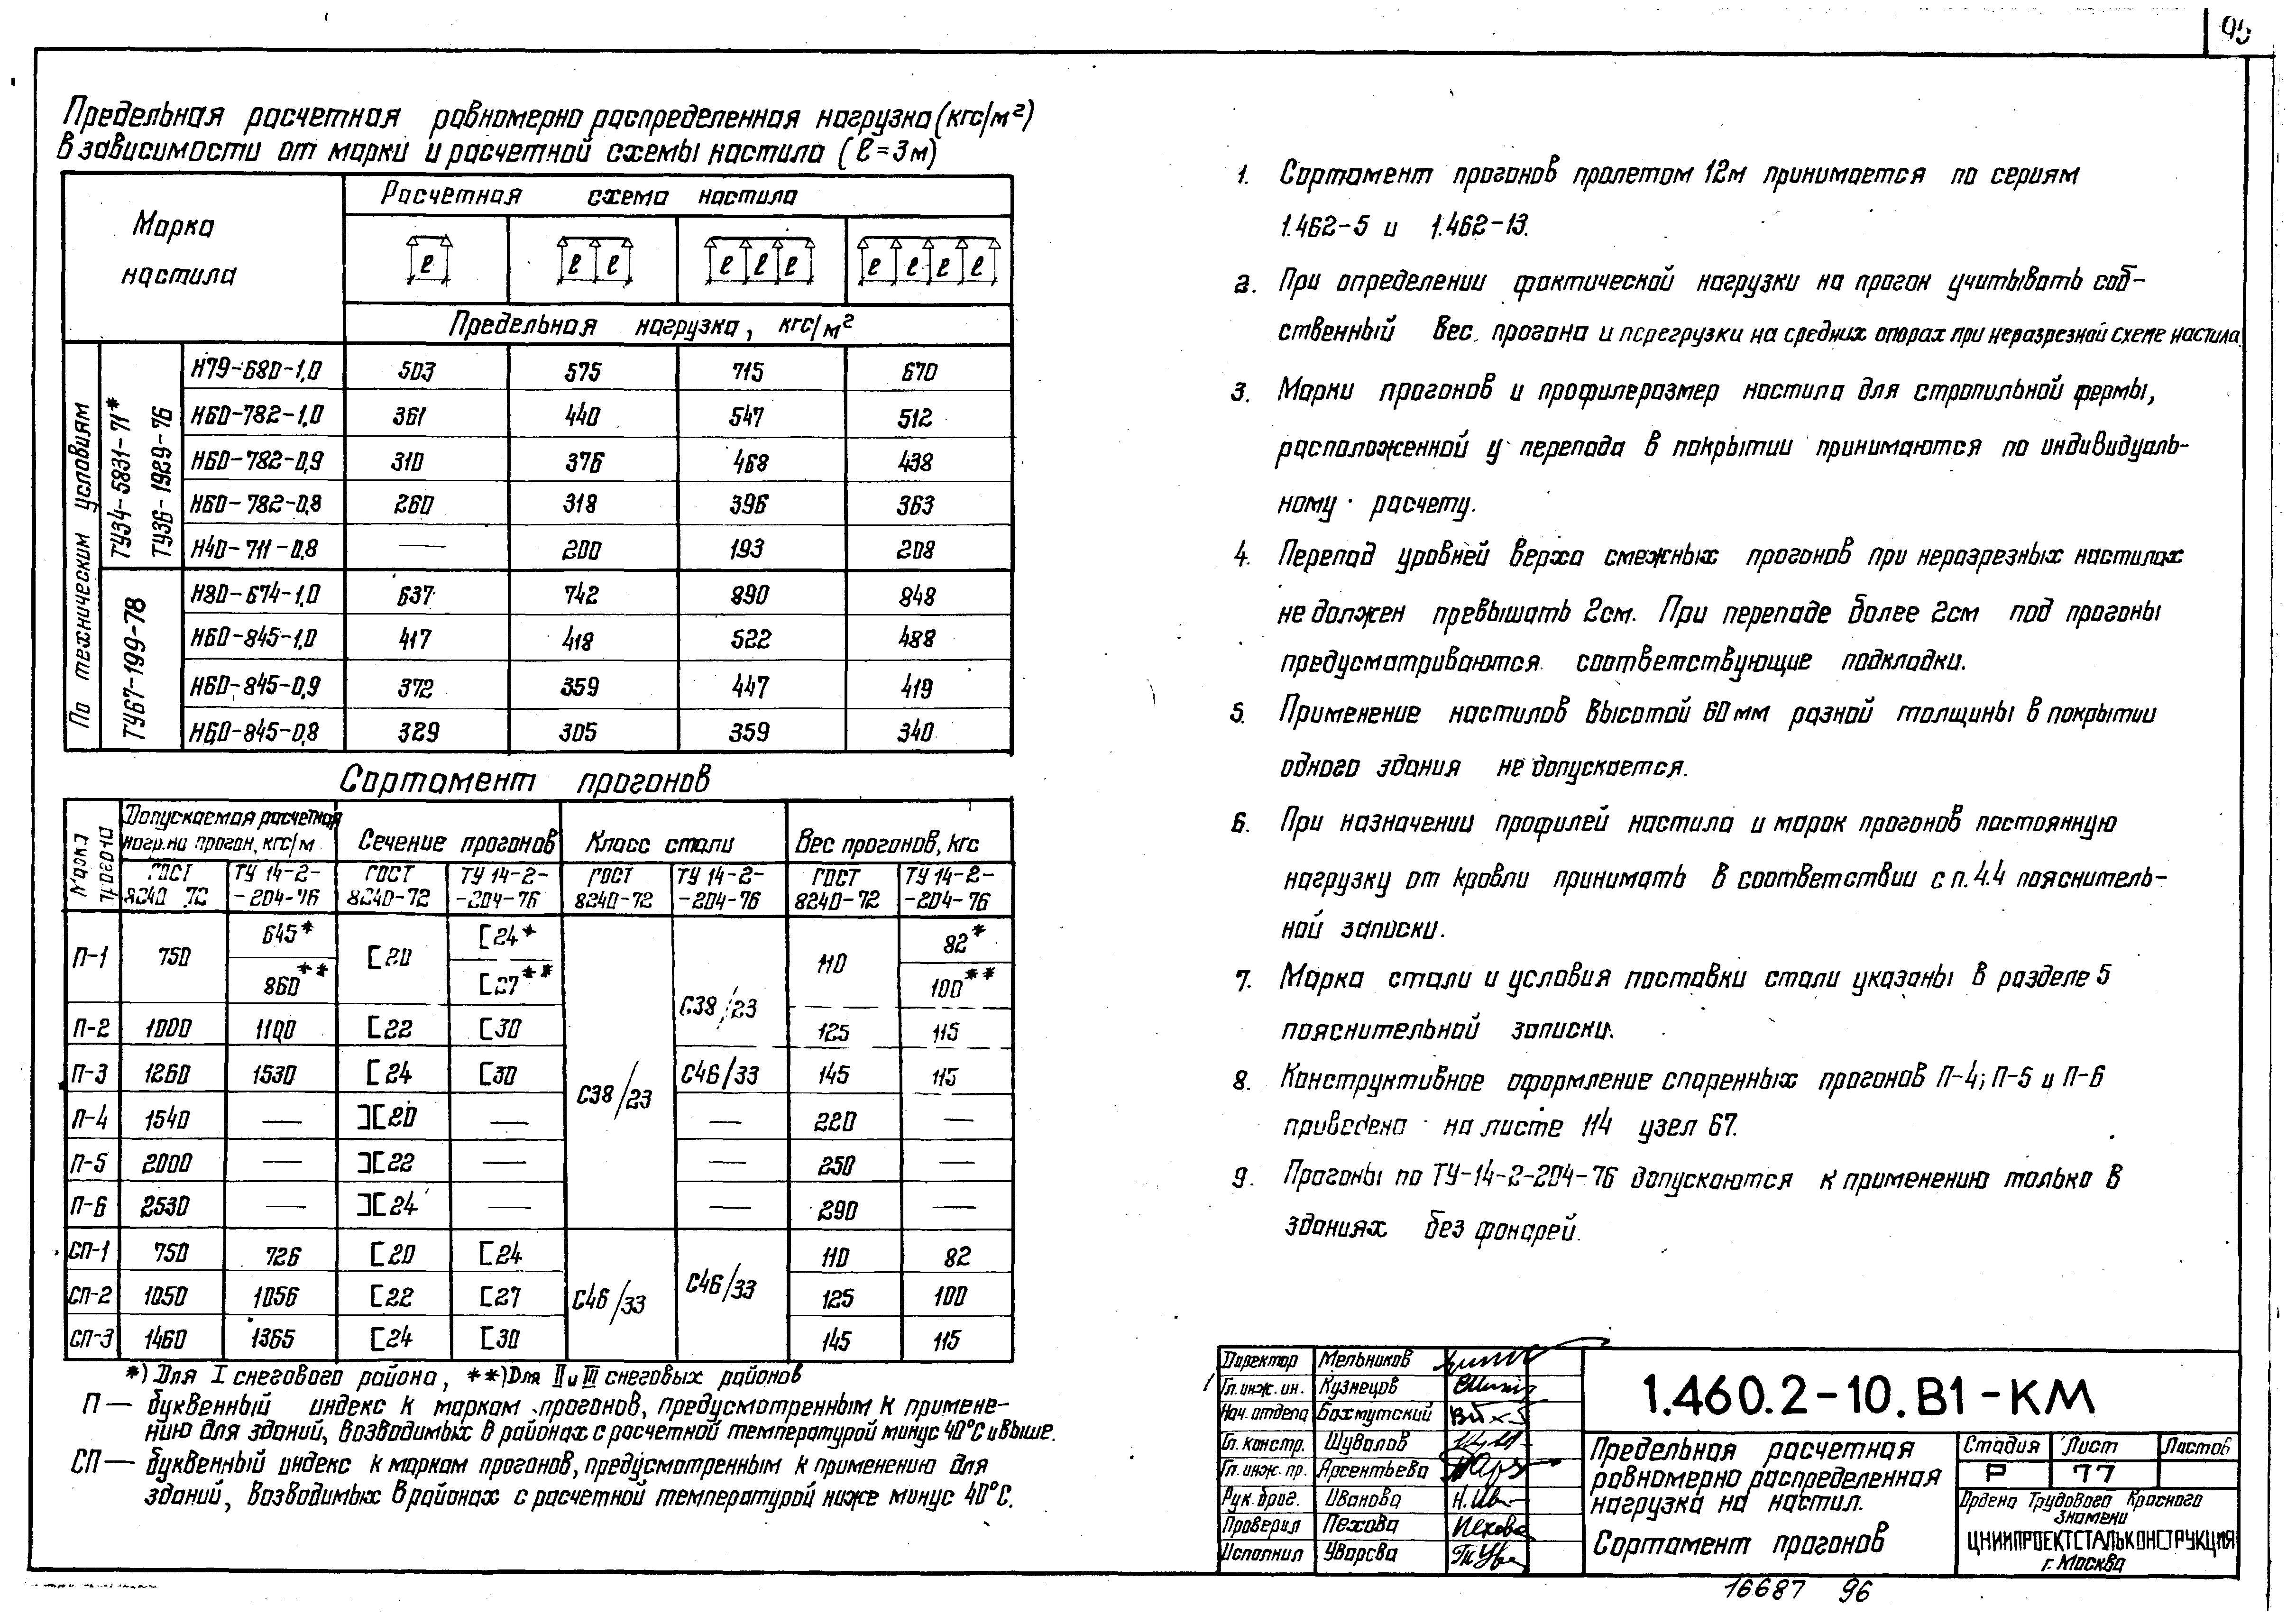 95
Предельная расчетная равномерно распределенная нагрузка (кгс/м²)
в зависимости от марки и расчетной схемы настила (ℓ=3м)
Марка настила
Расчетная схема настила
ℓ
ℓ ℓ
ℓ ℓ ℓ
ℓ ℓ ℓ ℓ
Предельная нагрузка, кгс/м²
По техническим условиям
ТУ34-5831-71*
ТУ36-1929-76
Н79-680-1,0 503 575 715 670
Н60-782-1,0 361 440 547 512
Н60-782-0,9 310 376 468 438
Н60-782-0,8 260 318 396 363
Н40-711-0,8 — 200 193 208
ТУ67-199-78
Н80-674-1,0 637 742 890 848
Н60-845-1,0 417 418 522 488
Н60-845-0,9 372 359 447 419
Н60-845-0,8 329 305 359 340
Сортамент прогонов
Марка прогона
Допускаемая расчетная нагр. на прогон, кгс/м
Сечение прогонов
Класс стали
Вес прогонов, кгс
ГОСТ 8240-72
ТУ 14-2-204-76
ГОСТ 8240-72
ТУ 14-2-204-76
ГОСТ 8240-72
ТУ 14-2-204-76
ГОСТ 8240-72
ТУ 14-2-204-76
П-1 750 645* [20 [24* 110 82*
860** [27** 100**
П-2 1000 1100 [22 [30 С38/23 125 115
П-3 1260 1530 [24 [30 С38/23 С46/33 145 115
П-4 1540 — ][20 — — 220 —
П-5 2000 — ][22 — — 250 —
П-6 2530 — ][24 — — 290 —
СП-1 750 726 [20 [24 110 82
СП-2 1050 1056 [22 [27 С46/33 С46/33 125 100
СП-3 1460 1365 [24 [30 145 115
*) Для I снегового района, **) Для II и III снеговых районов
П — буквенный индекс к маркам прогонов, предусмотренным к примене-
нию для зданий, возводимых в районах с расчетной температурой минус 40°С и выше.
СП — буквенный индекс к маркам прогонов, предусмотренным к применению для
зданий, возводимых в районах с расчетной температурой ниже минус 40°С.
1. Сортамент прогонов пролетом 12м принимается по сериям
1.462-5 и 1.462-13.
2. При определении фактической нагрузки на прогон учитывать соб-
ственный вес прогона и перегрузки на средних опорах при неразрезной схеме настила.
3. Марки прогонов и профилеразмер настила для стропильной фермы,
расположенной у перепада в покрытии принимаются по индивидуаль-
ному расчету.
4. Перепад уровней верха смежных прогонов при неразрезных настилах
не должен превышать 2см. При перепаде более 2см под прогоны
предусматриваются соответствующие подкладки.
5. Применение настилов высотой 60мм разной толщины в покрытии
одного здания не допускается.
6. При назначении профилей настила и марок прогонов постоянную
нагрузку от кровли принимать в соответствии с п.4.4 пояснитель-
ной записки.
7. Марка стали и условия поставки стали указаны в разделе 5
пояснительной записки.
8. Конструктивное оформление спаренных прогонов П-4; П-5 и П-6
приведено на листе 114 узел 67.
9. Прогоны по ТУ-14-2-204-76 допускаются к применению только в
зданиях без фонарей.
Директор Мельников
Гл. инж. ин. Кузнецов
Нач. отдела Бахмутский
Гл. констр. Шувалов
Гл. инж. пр. Арсентьева
Рук. бриг. Иванова
Проверил Пехова
Исполнил Уварова
1.460.2-10.В1-КМ
Предельная расчетная
равномерно распределенная
нагрузка на настил.
Сортамент прогонов
Стадия Лист Листов
Р 77
Ордена Трудового Красного
Знамени
ЦНИИПРОЕКТСТАЛЬКОНСТРУКЦИЯ
г. Москва
16687 96